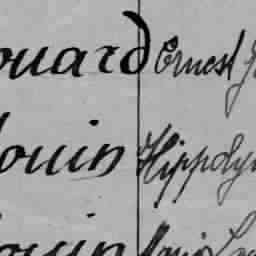 ouard Ernest
ouin Hippoly
ouin Marie